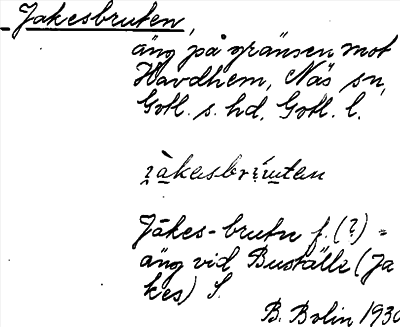 Jakesbruten,
äng på gränsen mot
Havdhem, Näs sn,
Gotl. s. hd. Gotl. l.
Jākes-brutn f. (?) =
äng vid Buställe (Ja
kes) S.
B. Bolin 1930